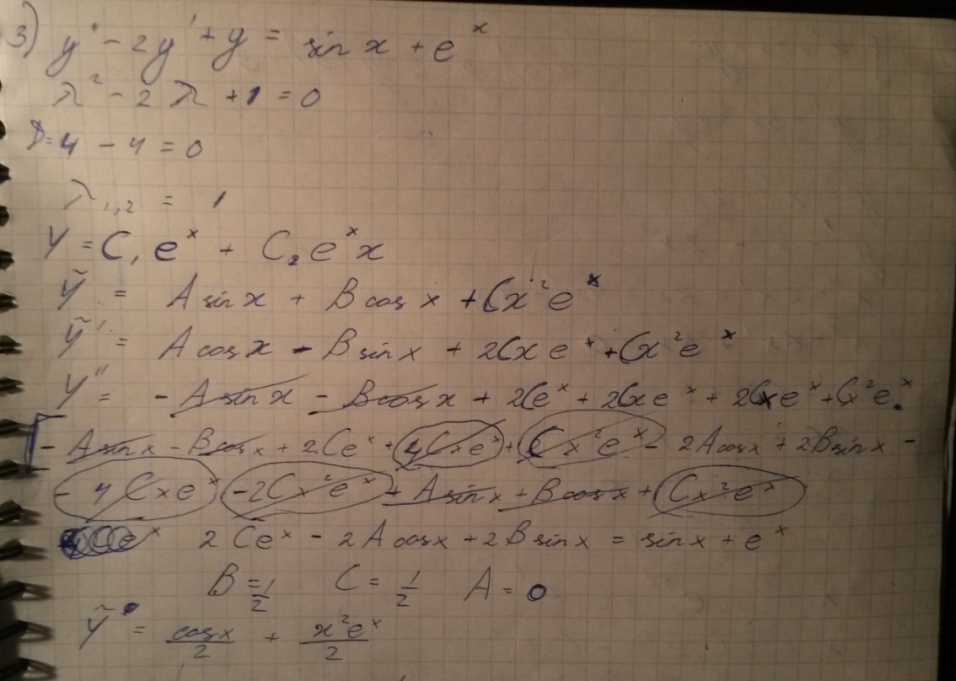 3) y'' - 2y' + y = sin x + e^x
λ² - 2λ + 1 = 0
D = 4 - 4 = 0
λ₁,₂ = 1
Y = C₁e^x + C₂e^x x
ỹ = A sin x + B cos x + Cx²e^x
ỹ' = A cos x - B sin x + 2Cxe^x + Cx²e^x
Y'' = - A sin x - B cos x + 2Ce^x + 2Cxe^x + 2Cxe^x + Cx²e^x
- A sin x - B cos x + 2Ce^x + 4Cxe^x + Cx²e^x - 2A cos x + 2B sin x -
- 4Cxe^x - 2Cx²e^x + A sin x + B cos x + Cx²e^x
2Ce^x - 2A cos x + 2B sin x = sin x + e^x
B = 1/2 C = 1/2 A = 0
ỹ = cos x/2 + x²e^x/2